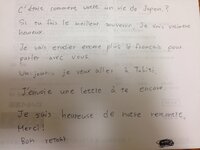 C'était comment votre un vie de Japon?
Si tu fais le meilleur souvenir. Je suis vraiment
heureux.
Je vais étudier encore plus le français pour
parler avec vous.
Un jour, je veux aller à Tahiti.
J'envoie une lettle à te encore.
Je suis heureuse de notre rencontre.
Merci!
Bon retour.